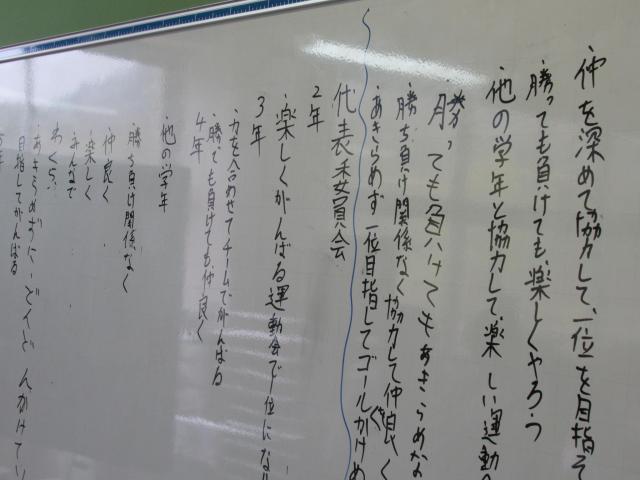 仲を深めて協力して、一位を目指そ
勝っても負けても、楽しくやろう
他の学年と協力して、楽しい運動
勝っても負けてもあきらめな
勝ち負け関係なく協力して仲良く
あきらめず一位目指してゴールかけめ
代表委員会
2年
楽しくがんばる運動会で1位にな
3年
力を合わせてチームでがんばる
勝ても負けても仲良く
4年
他の学年
勝ち負け関係なく
仲良く
楽しく
みんなで
わくら
あきらめずに
目指してがんばる